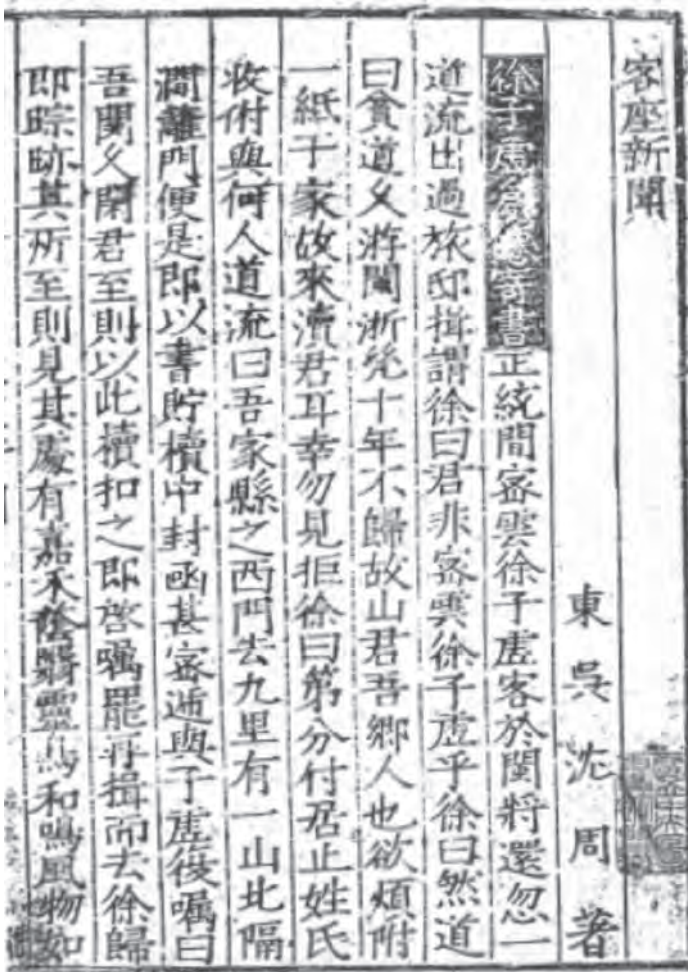 客座新聞
東吳沈周著
徐子虛爲僊寄書正統間密雲徐子虛客於閩將還忽一
道流出過旅邸揖謂徐曰君非密雲徐子虛乎徐曰然道
曰貧道乆游閩浙㡬十年不歸故山君吾鄉人也欲煩附
一紙于家故來瀆君耳幸勿見拒徐曰第分付居止姓氏
收付與何人道流曰吾家縣之西門去九里有一山北隔
澗籬門便是即以書貯櫝中封函甚密遞與子虛復囑曰
吾關乆閉君至則以此櫝扣之即啓囑罷再揖而去徐歸
即踪跡其所至則見其處有嘉木蔭翳靈鳥和鳴風物如